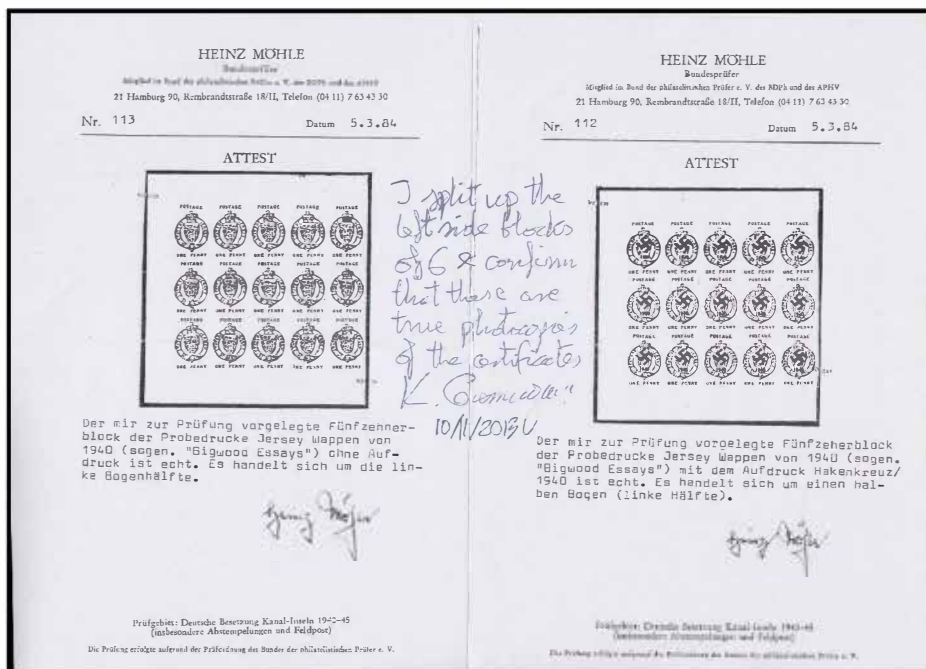 HEINZ MÖHLE
Bundesprüfer
Mitglied im Bund der philatelistischen Prüfer e. V. des BDPh und des APHV
21 Hamburg 90, Rembrandtstraße 18/II, Telefon (04 11) 7 63 43 30
Nr. 113 Datum 5.3.84
ATTEST
POSTAGE POSTAGE POSTAGE POSTAGE POSTAGE
ONE PENNY ONE PENNY ONE PENNY ONE PENNY ONE PENNY
POSTAGE POSTAGE POSTAGE POSTAGE POSTAGE
ONE PENNY ONE PENNY ONE PENNY ONE PENNY ONE PENNY
POSTAGE POSTAGE POSTAGE POSTAGE POSTAGE
ONE PENNY ONE PENNY ONE PENNY ONE PENNY ONE PENNY
Der mir zur Prüfung vorgelegte Fünfzehner-
block der Probedrucke Jersey Wappen von
1940 (sogen. "Bigwood Essays") ohne Auf-
druck ist echt. Es handelt sich um die lin-
ke Bogenhälfte.
Prüfgebiet: Deutsche Besetzung Kanal-Inseln 1940-45
(insbesondere Abstempelungen und Feldpost)
Die Prüfung erfolgte aufgrund der Prüfordnung des Bundes der philatelistischen Prüfer e. V.
I split up the
left side blocks
of 6 & confirm
that these are
true photocopies
of the certificates
K.
10/11/2013
HEINZ MÖHLE
Bundesprüfer
Mitglied im Bund der philatelistischen Prüfer e. V. des BDPh und des APHV
21 Hamburg 90, Rembrandtstraße 18/II, Telefon (04 11) 7 63 43 30
Nr. 112 Datum 5.3.84
ATTEST
POSTAGE POSTAGE POSTAGE POSTAGE POSTAGE
1940 1940 1940 1940 1940
ONE PENNY ONE PENNY ONE PENNY ONE PENNY ONE PENNY
POSTAGE POSTAGE POSTAGE POSTAGE POSTAGE
1940 1940 1940 1940 1940
ONE PENNY ONE PENNY ONE PENNY ONE PENNY ONE PENNY
POSTAGE POSTAGE POSTAGE POSTAGE POSTAGE
1940 1940 1940 1940 1940
ONE PENNY ONE PENNY ONE PENNY ONE PENNY ONE PENNY
Der mir zur Prüfung vorgelegte Fünfzeherblock
der Probedrucke Jersey Wappen von 1940 (sogen.
"Bigwood Essays") mit dem Aufdruck Hakenkreuz/
1940 ist echt. Es handelt sich um einen hal-
ben Bogen (linke Hälfte).
Prüfgebiet: Deutsche Besetzung Kanal-Inseln 1940-45
(insbesondere Abstempelungen und Feldpost)
Die Prüfung erfolgte aufgrund der Prüfordnung des Bundes der philatelistischen Prüfer e. V.